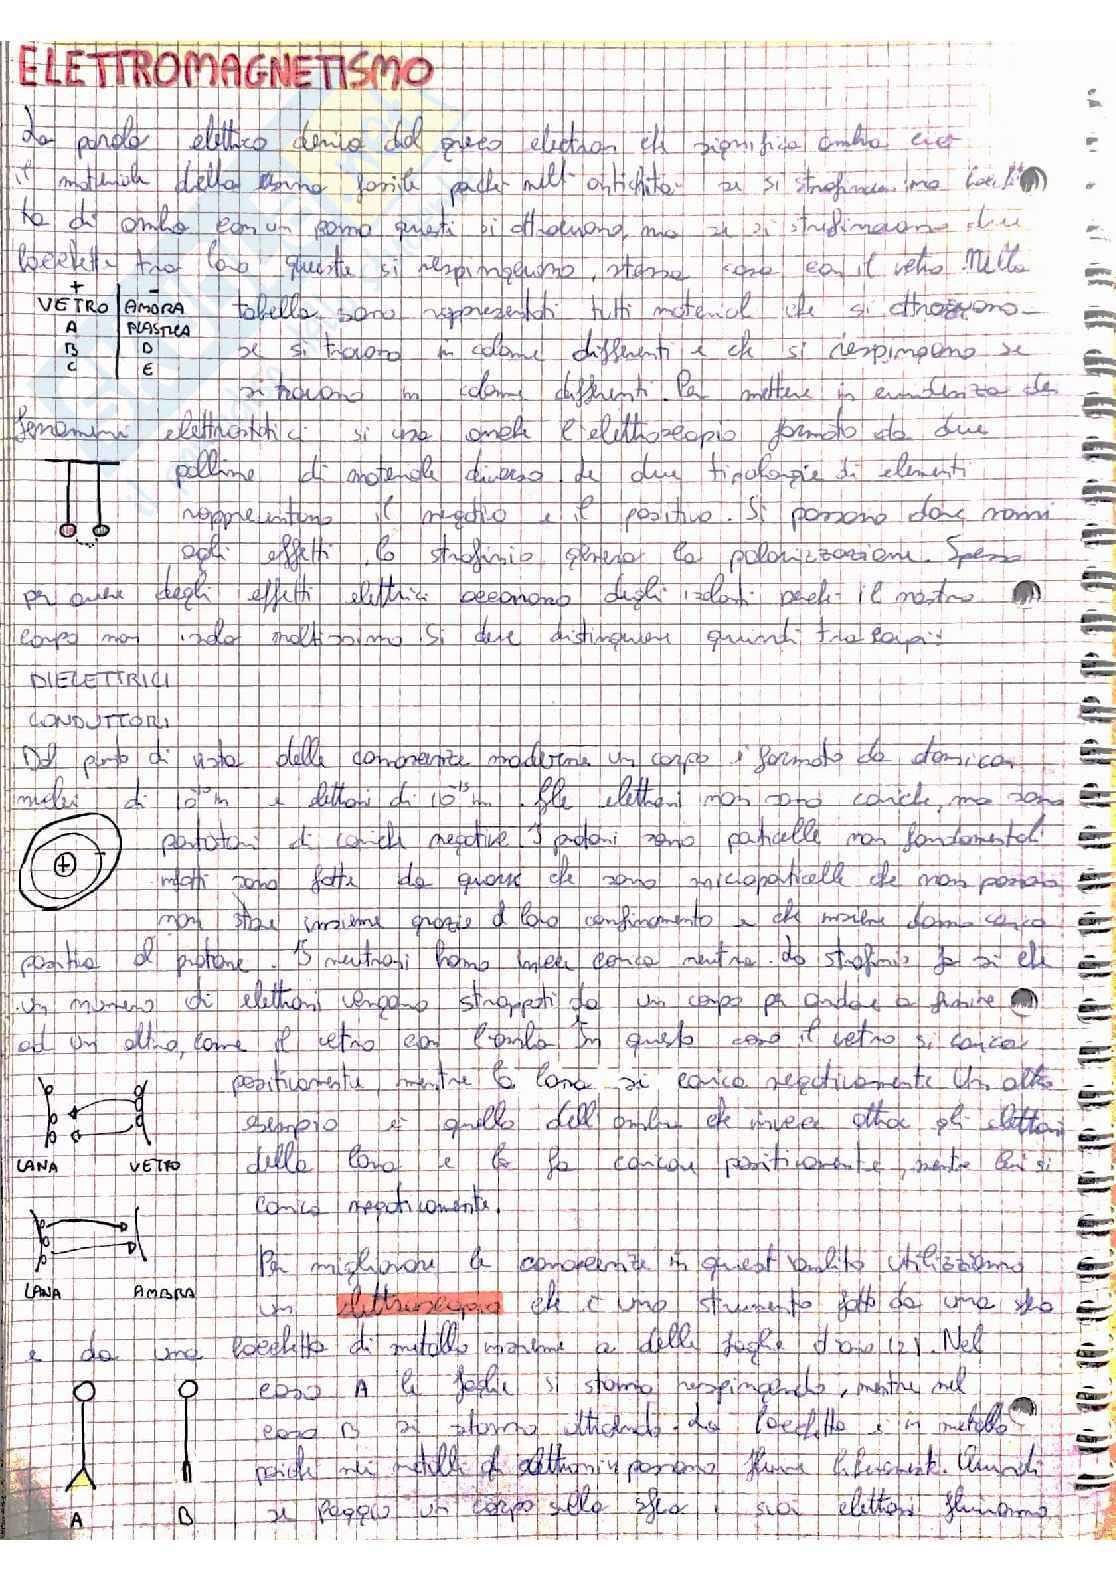 ELETTROMAGNETISMO
La parola elettrico deriva dal greco electron che significa ambra cioè
il materiale della fossile perché nell'antichità se si strofinava una
ta di ambra con un panno questi si attraevano, ma se si strofinavano due
bacchette tra loro queste si respingevano, stessa cosa con il vetro. Nella
+ -
VETRO AMBRA tabella sono rappresentati tutti materiali che si attraggono
A PLASTICA
B D se si trovano in colonne differenti e che si respingono se
C E
si trovano in colonne differenti. Per mettere in evidenza dei
fenomeni elettrostatici si usa anche l'elettroscopio formato da due
palline di materiale diverso le due tipologie di elementi
rappresentano il negativo e il positivo. Si possono dare nomi
agli effetti. Lo strofinio genera la polarizzazione. Spesso
per avere degli effetti elettrici occorrono degli isolanti perché il nostro
corpo non isola moltissimo Si deve distinguere quindi tra corpi:
DIELETTRICI
CONDUTTORI
Dal punto di vista delle conoscenze moderne un corpo è formato da
nuclei di 10 m e elettroni di 10⁻¹⁵ m. Gli elettroni non sono cariche, ma sono
portatori di cariche negative I protoni sono particelle non fondamentali
infatti sono fatte da quark che sono microparticelle che non possono
non stare insieme grazie al loro confinamento e che insieme danno carica
positiva al protone. I neutroni hanno invece carica neutra. Lo strofinio fa si che
un numero di elettroni vengano strappati da un corpo per andare a finire
ad un altro, come il vetro con l'ambra In questo caso il vetro si carica
positivamente, mentre la lana si carica negativamente Un altro
esempio è quello dell'ambra che invece attrae gli elettroni
LANA VETRO della lana e la fa caricare positivamente, mentre lei si
carica negativamente.
Per migliorare le conoscenze in quest'ambito utilizziamo
LANA AMBRA
un elettroscopio che è uno strumento fatto da una
e da una bacchetta di metallo insieme a delle foglie d'oro (2). Nel
caso A le foglie si stanno respingendo, mentre nel
caso B si stanno attirando. La bacchetta è in metallo
poiché nei metalli gli elettroni possono fluire liberamente. Quindi
A B se poggio un corpo sulla sfera i suoi elettroni fluiranno